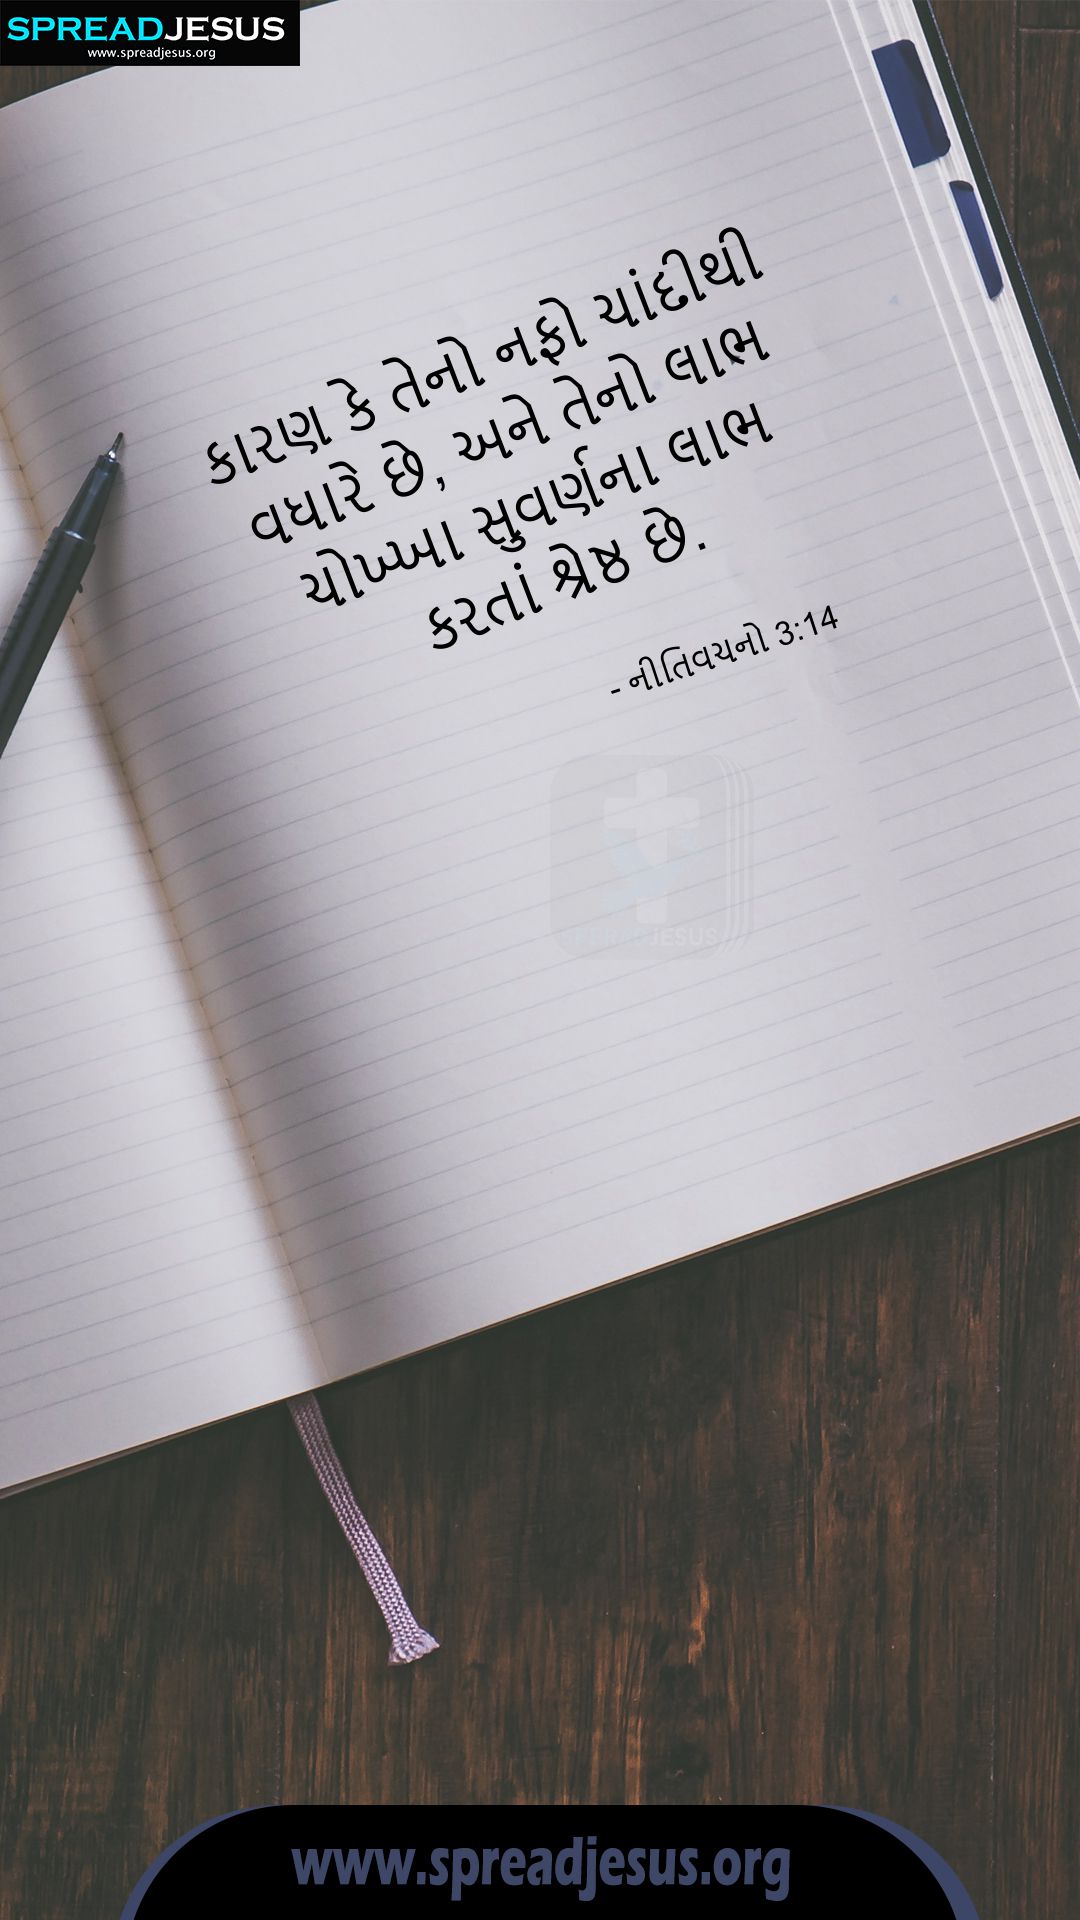 SPREADJESUS
www.spreadjesus.org
કારણ કે તેનો નફો ચાંદીથી
વધારે છે, અને તેનો લાભ
ચોખ્ખા સુવર્ણના લાભ
કરતાં શ્રેષ્ઠ છે.
- નીતિવચનો 3:14
SPREADJESUS
www.spreadjesus.org